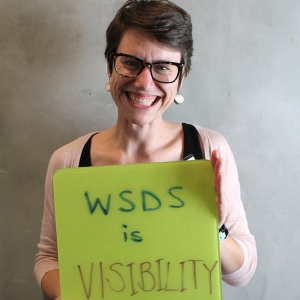 WSDS
is
VISIBILITY